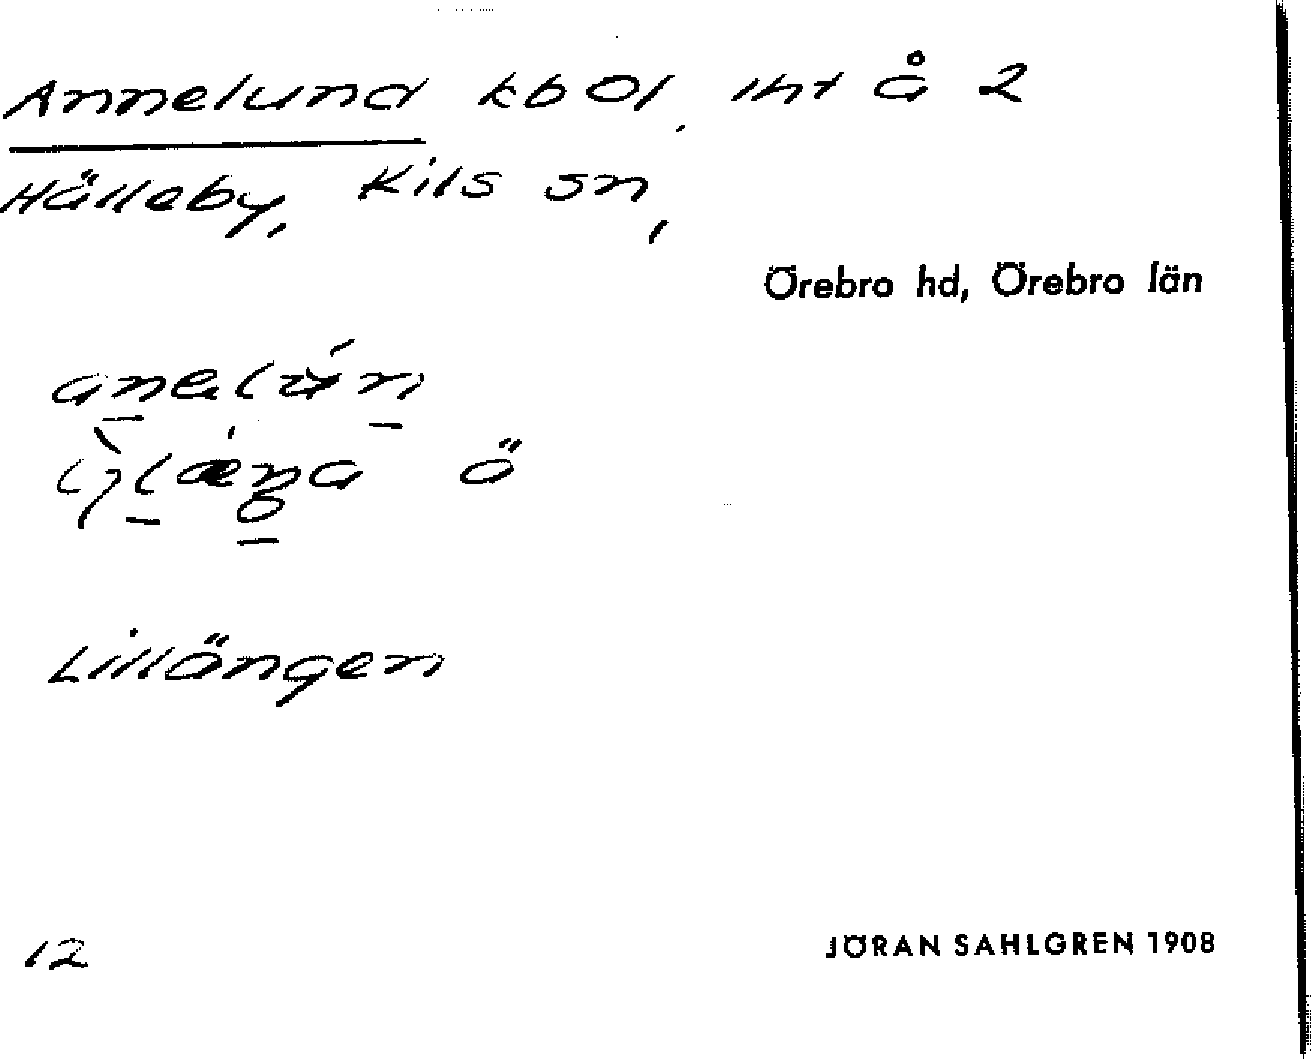 Annelund kbol, lht å 2
Hälleby, Kils sn,
Örebro hd, Örebro län
ö
Lillängen
12
JÖRAN SAHLGREN 1908